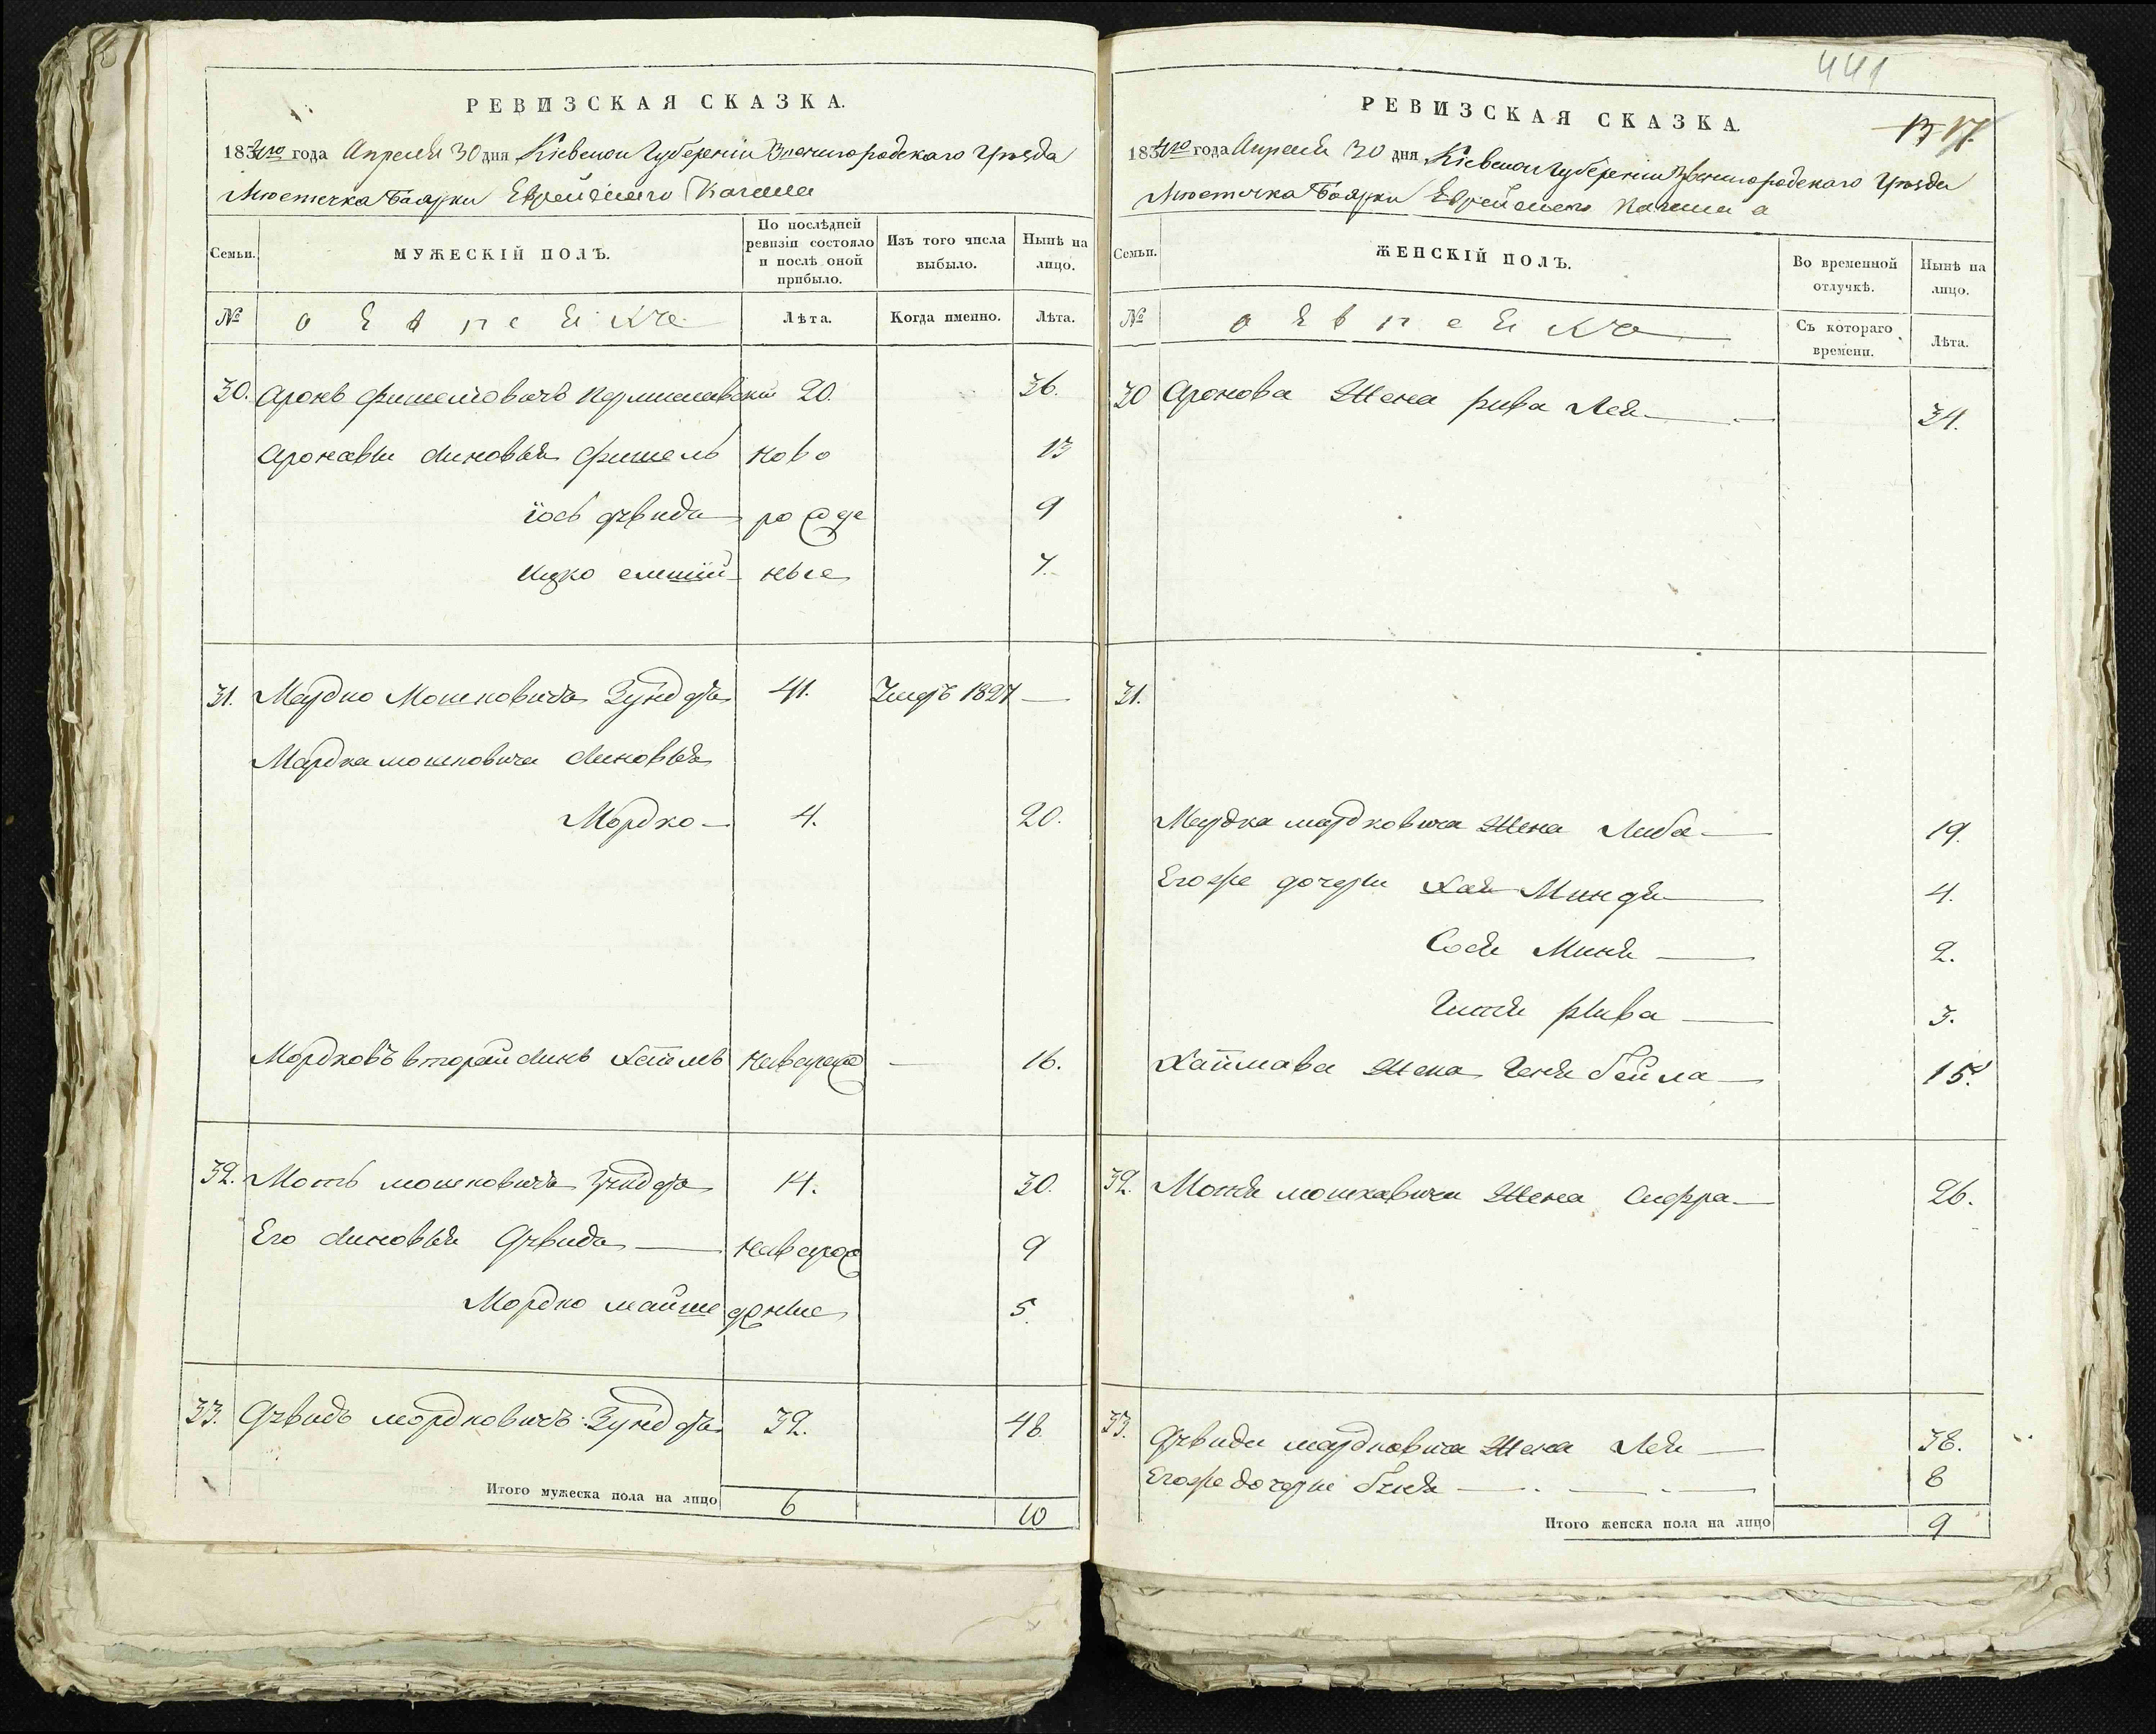 РЕВИЗСКАЯ СКАЗКА.
1834го года Апреля 30 дня Кіевской Губерніи Звенигородского Уѣзда
Мюстечка Боярки Еврейского Кагала
Семьи.
МУЖЕСКІЙ ПОЛЪ.
По послѣдней ревизіи состояло и послѣ оной прибыло.
Изъ того числа выбыло.
Нынѣ на лицо.
№
Лѣта.
Когда именно.
Лѣта.
30. Аронъ Фишелювичъ 20. 36.
Ароновы синовья Фишель ново 13
іось дувидъ рожде 9
ицко ные 7.
31. Мардко Мошковичъ Зунд 41. Умеръ 1827 —
Мардка мошковича синовья
Мордко — 4. 20.
Мордковъ вторый синъ — 16.
32. Моть мошковичъ 14. 30.
Его синовья Дувидъ — 9
Мордко майше 5.
33. Дувидъ мордковичъ Зунд 32. 48
Итого мужеска пола на лицо 6 10
441
РЕВИЗСКАЯ СКАЗКА.
17.
1834го года Апреля 30 дня Кіевской Губерніи Звенигородского Уѣзда
Мюстечка Боярки Еврейского Кагала
Семьи.
ЖЕНСКІЙ ПОЛЪ.
Во временной отлучкѣ.
Нынѣ на лицо.
№
Съ котораго времени.
Лѣта.
30 Аронова Жена рива Лея — 34.
31.
Мардка мардковича Жена Либа — 19.
Егоже дочери Хая Миндя — 4.
Сося Миня — 2.
Гитля рива — 3.
Жена Геня бейла — 15.
32. Мотя мошковича Жена Сифра — 26.
33. Дувида мардковича Жена Лея — 38.
Егоже дочери — 8
Итого женска пола на лицо 9